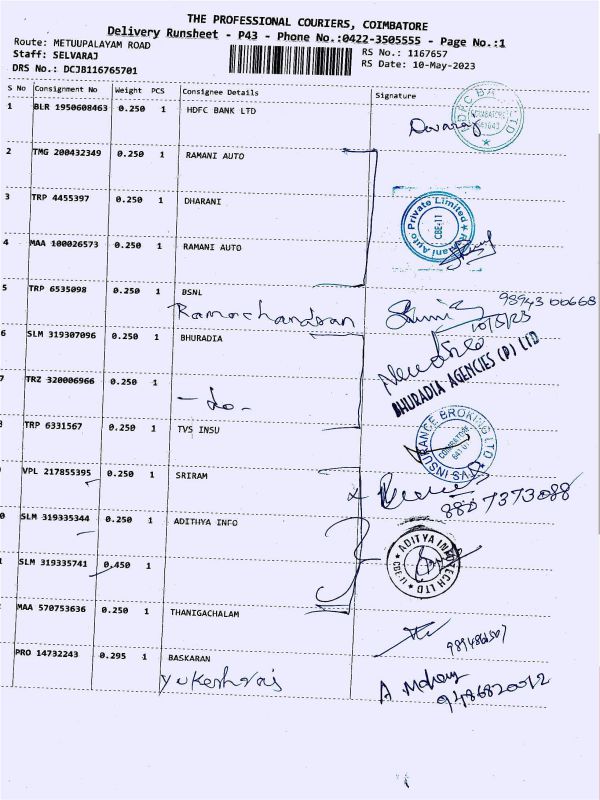 THE PROFESSIONAL COURIERS, COIMBATORE
Delivery Runsheet - P43 - Phone No.:0422-3505555 - Page No.:1
Route: METUUPALAYAM ROAD
RS No.: 1167657
Staff: SELVARAJ
RS Date: 10-May-2023
DRS No.: DCJB116765701
S No Consignment No Weight PCS Consignee Details Signature
1 BLR 1950608463 0.250 1 HDFC BANK LTD
Devaraj
2 TMG 200432349 0.250 1 RAMANI AUTO
3 TRP 4455397 0.250 1 DHARANI
Ramani Auto Private Limited
CBE-11
4 MAA 100026573 0.250 1 RAMANI AUTO
5 TRP 6535098 0.250 1 BSNL
Ramachandran
98943 00668
10/5/23
6 SLM 319307096 0.250 1 BHURADIA
BHURADIA AGENCIES (P) LTD
7 TRZ 320006966 0.250 1
-do-
8 TRP 6331567 0.250 1 TVS INSU
TVS INSURANCE BROKING LTD
9 VPL 217855395 0.250 1 SRIRAM
8807373088
0 SLM 319335344 0.250 1 ADITHYA INFO
ADITYA INFOTECH LTD
CBE-11
1 SLM 319335741 0.450 1
MAA 570753636 0.250 1 THANIGACHALAM
PRO 14732243 0.295 1 BASKARAN
yukeshraj
A. Mohan